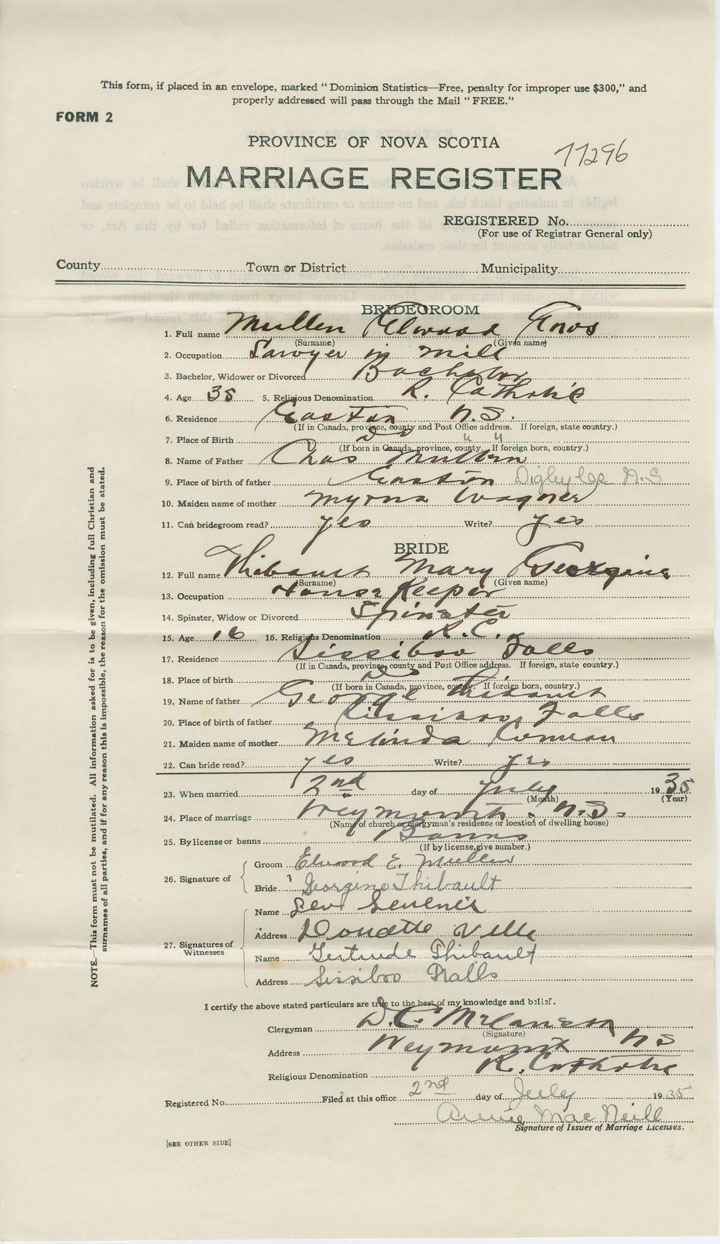 This form, if placed in an envelope, marked "Dominion Statistics—Free, penalty for improper use $300," and
properly addressed will pass through the Mail "FREE."
FORM 2
PROVINCE OF NOVA SCOTIA
77296
MARRIAGE REGISTER
REGISTERED No.
(For use of Registrar General only)
County Town or District Municipality
BRIDEGROOM
1. Full name Mullen Elwood Enos
(Surname) (Given name)
2. Occupation Sawyer in mill
3. Bachelor, Widower or Divorced Bachelor
4. Age 35 5. Religious Denomination R. Catholic
6. Residence Easton N.S.
(If in Canada, province, county and Post Office address. If foreign, state country.)
7. Place of Birth Do " "
(If born in Canada, province, county. If foreign born, country.)
8. Name of Father Chas Mullen
9. Place of birth of father Easton Digby Co N.S
10. Maiden name of mother Myrna Wagner
11. Can bridegroom read? yes Write? yes
BRIDE
12. Full name Thibault Mary Georgina
(Surname) (Given name)
13. Occupation House Keeper
14. Spinster, Widow or Divorced Spinster
15. Age 16 16. Religious Denomination R.C.
17. Residence Sissiboo Falls
(If in Canada, province, county and Post Office address. If foreign, state country.)
18. Place of birth Do
(If born in Canada, province, county. If foreign born, country.)
19. Name of father George Thibault
20. Place of birth of father Sissiboo Falls
21. Maiden name of mother Melinda Comeau
22. Can bride read? yes Write? yes
23. When married 2nd day of July 1935
(Month) (Year)
24. Place of marriage Weymouth N.S.
(Name of church or clergyman's residence or location of dwelling house)
25. By license or banns Banns
(If by license, give number.)
26. Signature of Groom Elwood E. Mullen
Bride Georgina Thibault
27. Signatures of Witnesses
Name
Address Doucette Ville
Name Gertrude Thibault
Address Sissiboo Falls
I certify the above stated particulars are true to the best of my knowledge and belief.
Clergyman D. C.
(Signature)
Address Weymouth N S
Religious Denomination R. Catholic
Registered No. Filed at this office 2nd day of July 1935
Annie MacNeill
Signature of Issuer of Marriage Licenses.
[SEE OTHER SIDE]
NOTE.—This form must not be mutilated. All information asked for is to be given, including full Christian and
surnames of all parties, and if for any reason this is impossible, the reason for the omission must be stated.